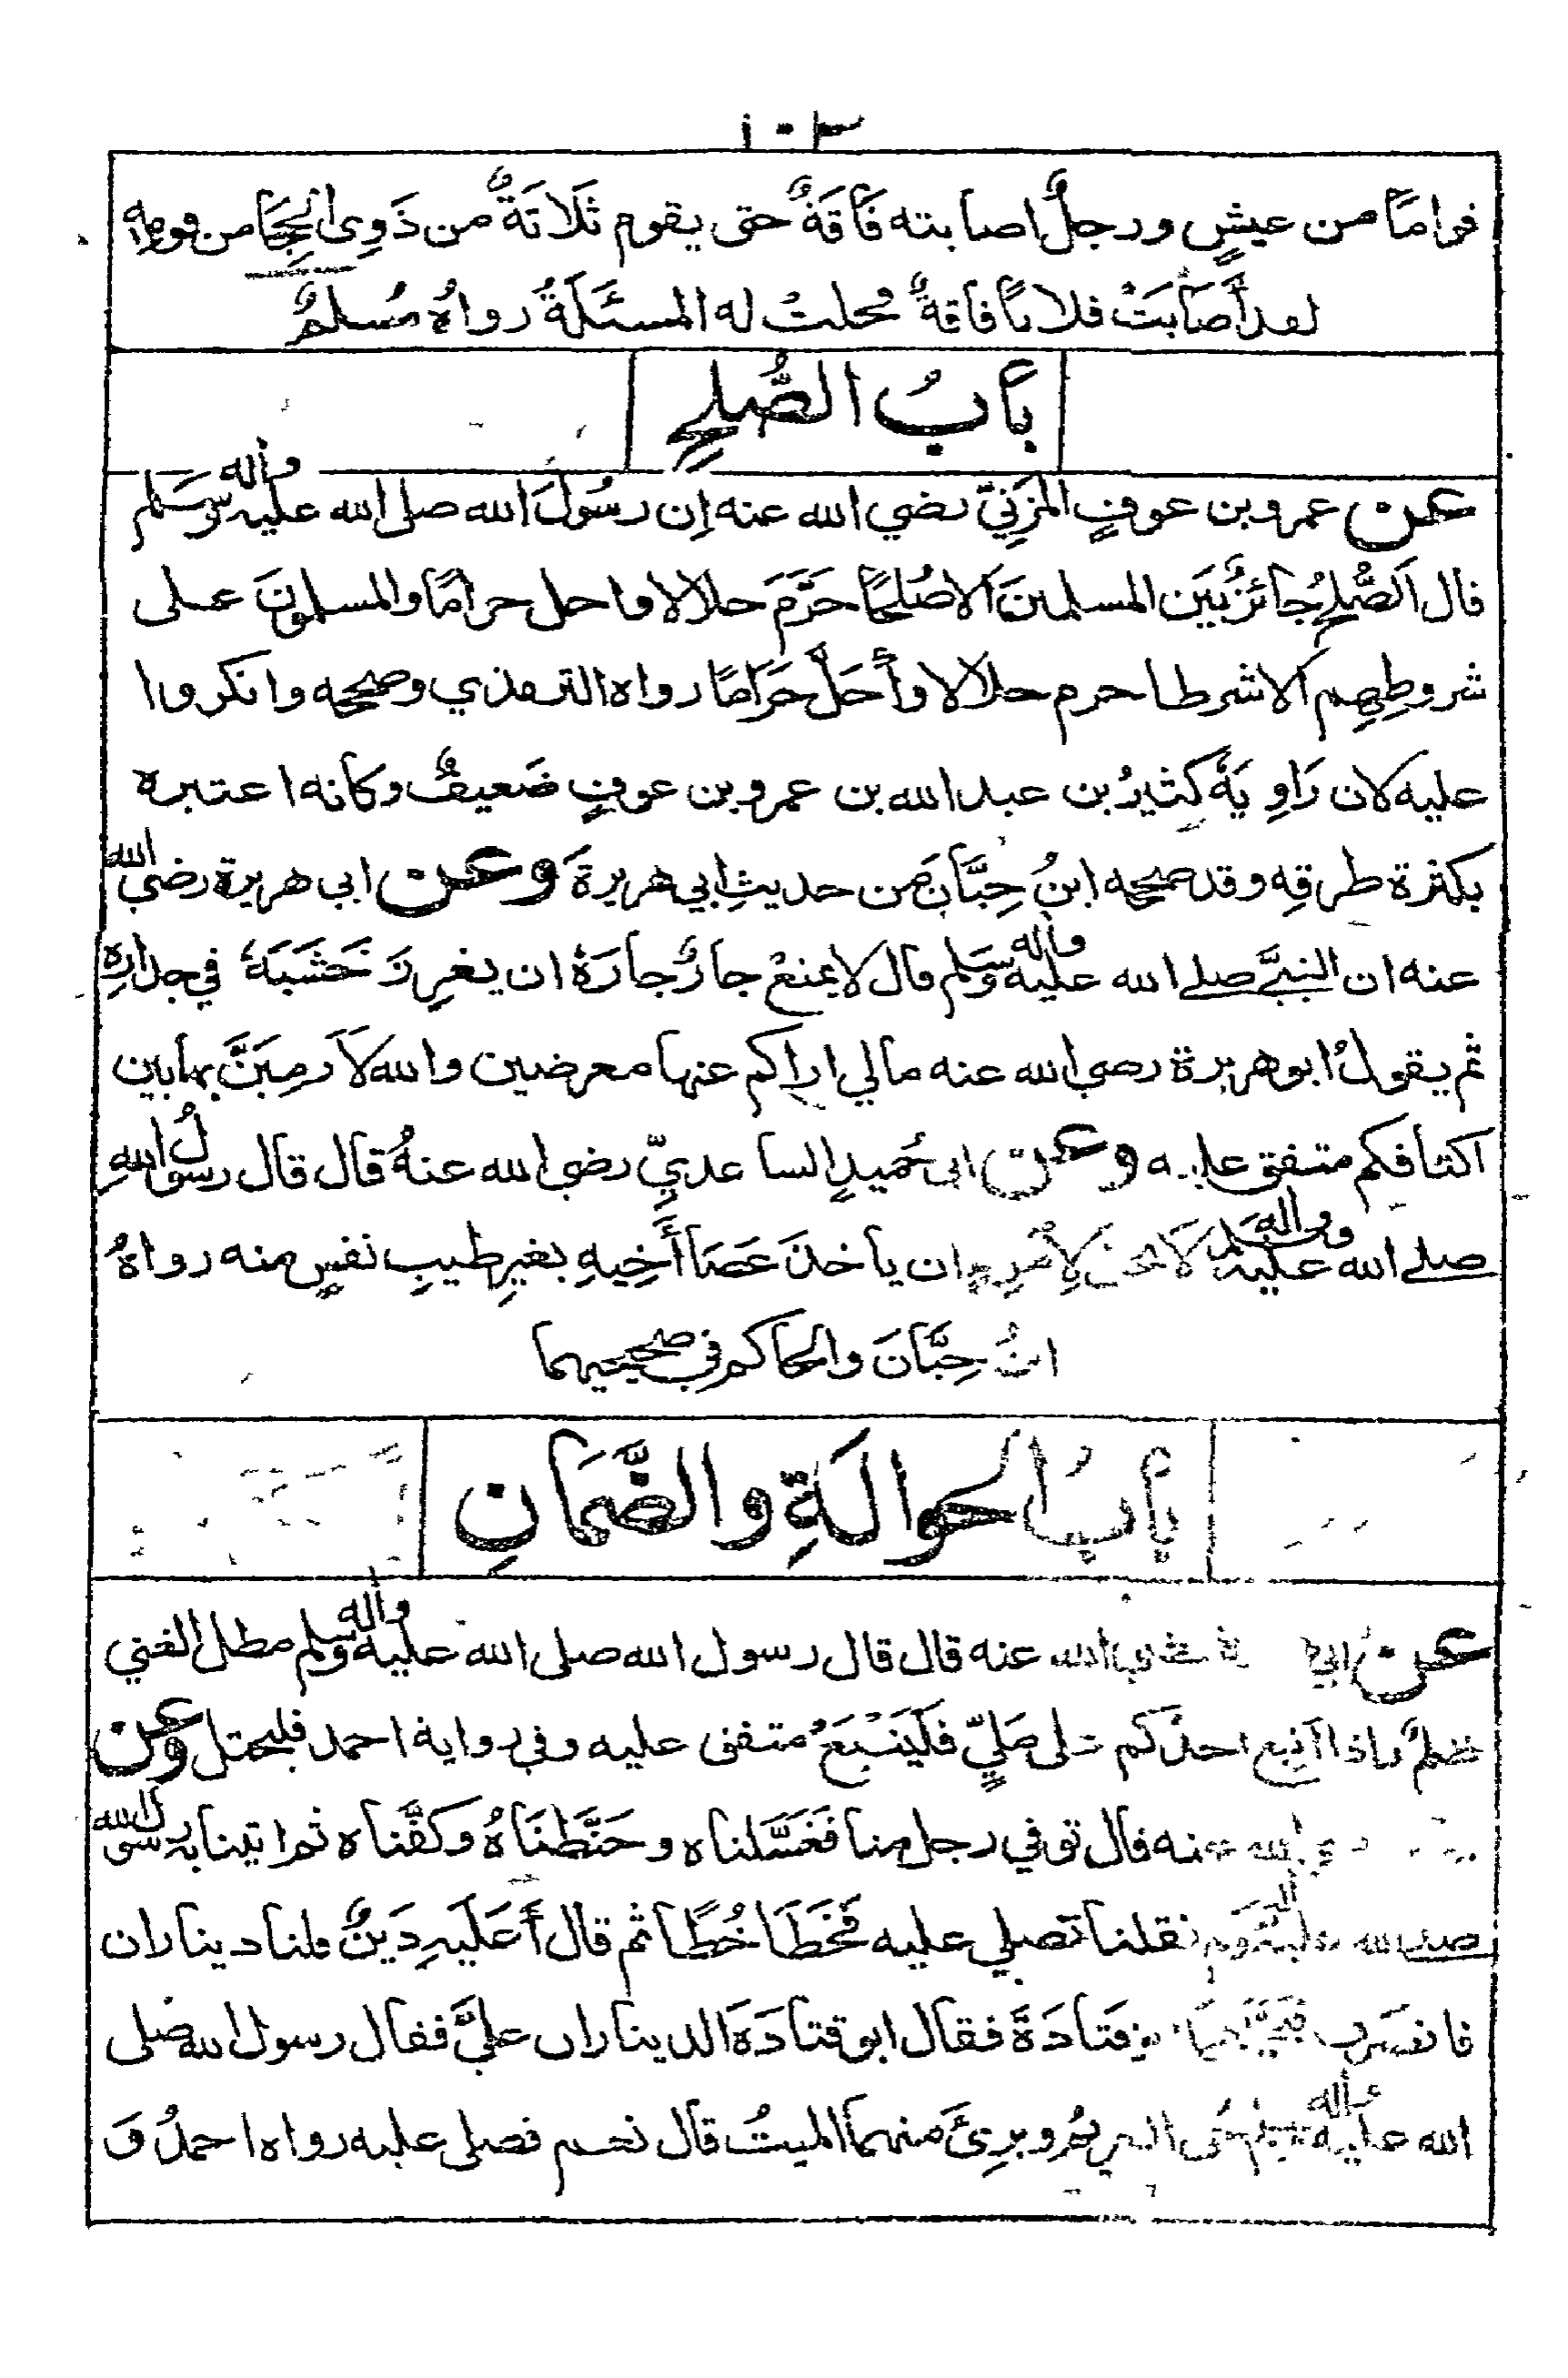 ١٠٣
قوامًا من عيشٍ ورجلٌ اصابته فَاقَةٌ حتى يقوم ثَلَاثَةٌ من ذَوِى الحِجَا من قومِهِ
لقد أَصَابَتْ فلانًا فاقةٌ فحلتْ له المسئَلَةُ رواهُ مُسلمٌ
بابُ الصُّلحِ
عن عمرو بن عوفٍ المُزَنِيِّ رضي الله عنه اِن رسُولَ الله صلى الله عليه واله وسَلم
قال اَلصُّلحُ جائزٌ بَيْنَ المسلمينَ اِلا صُلحًا حَرَّمَ حلالا او احل حرامًا والمسلمونَ عـلى
شروطِهِم اِلا شرطا حرم حلالا او أَحَلَّ حَرَامًا رواه الترمذي وصححه وانكروا
عليه لان رَاوِيَهُ كَثيرُ بن عبد الله بن عمرو بن عوفٍ ضَعيفٌ وكانه اعتبره
بكثرة طرقِه وقد صححه ابنُ حِبَّانَ من حديثِ ابي هريرةَ وعن ابى هريرة رضي الله
عنه ان النبيَّ صلى الله عليه واله وسَلم قال لا يمنعْ جارٌ جارَهُ ان يغرِزَ خَشَبَهُ في جدارِهِ
ثم يقولُ ابو هريرة رضي الله عنه مالي اراكم عنها معرضين والله لَاَرمِيَنَّ بها بين
اكتافكم متفق عليه وعن ابى حُميدٍ الساعديِّ رضى الله عنهُ قال قال رسولُ اللهِ
صلى الله عليه واله وسلم لَا يحل لِامْرِءٍ ان ياخذَ عَصَا أَخِيهِ بغيرِ طيبِ نفسٍ منه رواهُ
ابنُ حِبَّانَ والحاكم في صحيحيهما
بابُ الحوالَةِ والضَّمَانِ
عن ابي رضي الله عنه قال قال رسول الله صلى الله عليه واله وسلم مطل الغني
ظلمٌ واذا اُتبِع احدُكم على مَلِيٍّ فَلْيَتْبَعْ متفق عليه وفي رواية احمد فليحتل وعن
الله عنه قال توفي رجل منا فَغَسَّلناه وحَنَّطنَاهُ وكفَّناه ثم اتينا به رسول الله
صلى الله عليه واله وسلم فقلنا تصلي عليه فَخَطَا خُطًا ثم قال أَعَلَيهِ دَينٌ قلنا ديناران
فانصَرف فَتحَمَّلَهُمَا ابو قَتَادَةَ فقال ابو قتادَةَ الديناران عليَّ فقال رسول الله صلى
الله عليه واله وسلم حُق الغريمُ وبرِئَ منهما الميتُ قال نعـم فصلى عليه رواه احمدُ وَ